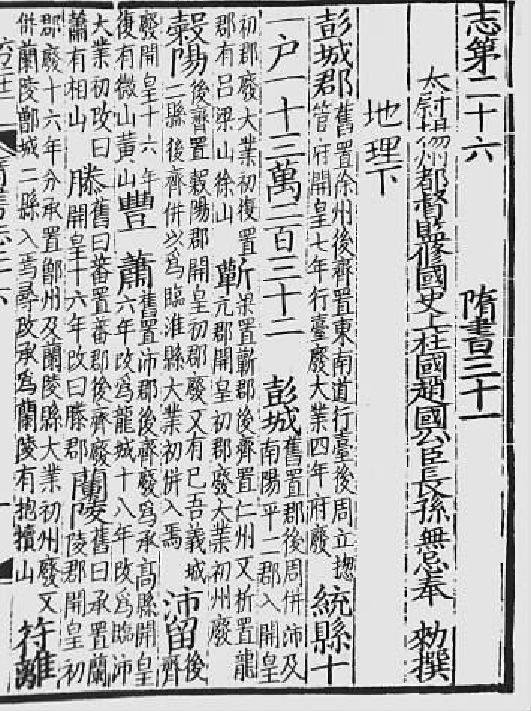 志第二十六 隋書三十一
太尉揚州都督監修國史上柱國趙國公臣長孫無忌奉 勑撰
地理下
彭城郡舊置徐州後齊置東南道行臺後周立揔管府開皇七年行臺廢大業四年府廢統縣十
一户一十三萬二百三十二 彭城舊置郡後周併沛及南陽平二郡入開皇
初郡廢大業初復置郡有呂梁山徐山 蘄梁置蘄郡後齊置仁州又析置龍亢郡開皇初郡廢大業初州廢
穀陽後齊置穀陽郡開皇初郡廢又有巳吾義城二縣後齊併以爲臨淮縣大業初併入焉 沛留後齊
廢開皇十六年復有微山黃山 豐 蕭舊置沛郡後齊廢爲承高縣開皇六年改爲龍城十八年改爲臨沛
大業初改曰蕭有相山 滕舊曰蕃置蕃郡後齊廢開皇十六年改曰滕郡 蘭陵舊曰承置蘭陵郡開皇初
郡廢十六年分承置鄫州及蘭陵縣大業初州廢又併蘭陵鄫城二縣入焉尋改承爲蘭陵有抱犢山 符離